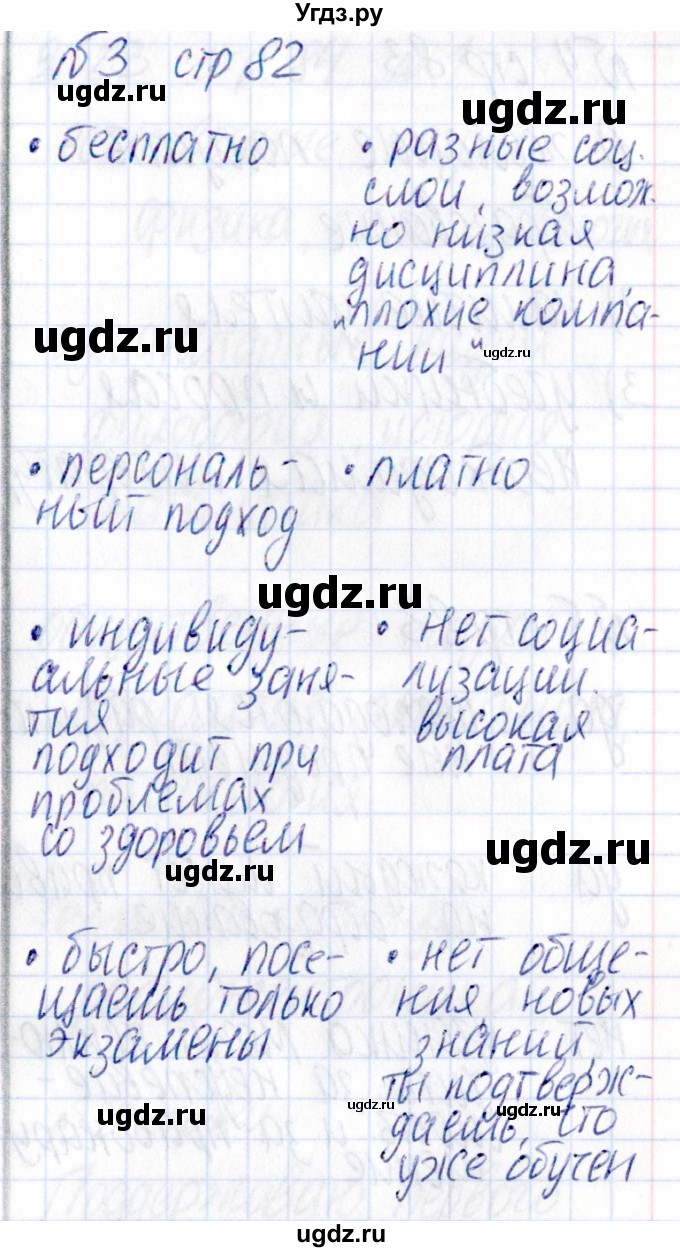 Угдз.ру
№3 стр 82
ugdz.ru
ugdz.ru
• бесплатно
• разные соц.
слои, возмож.
но низкая
дисциплина,
"плохие компа-
нии"
ugdz.ru
ugdz.ru
• персональ-
ный подход
• платно
ugdz.ru
• индивиду-
альные заня-
тия
подходит при
проблемах
со здоровьем
• нет социа-
лизации.
высокая
плата
ugdz.ru
ugdz.ru
• быстро, посе-
щаешь только
экзамены
• нет обще-
ния, новых
знаний,
ты подтверж-
даешь, что
уже обучен
ugdz.ru
ugdz.ru
ugdz.ru
ugdz.ru